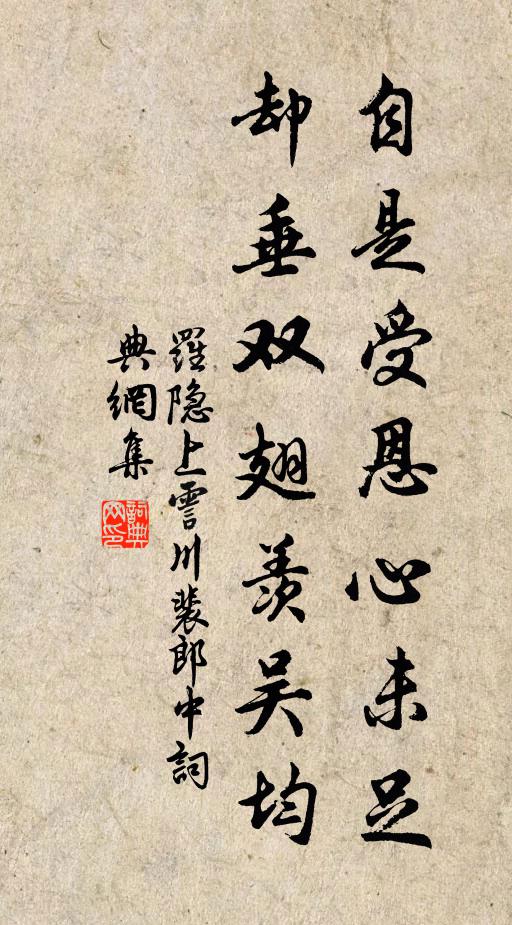 自是受恩心未足
却垂双翅羡吴均
羅隐上霅川裴郎中詞
典網集
詞典網印